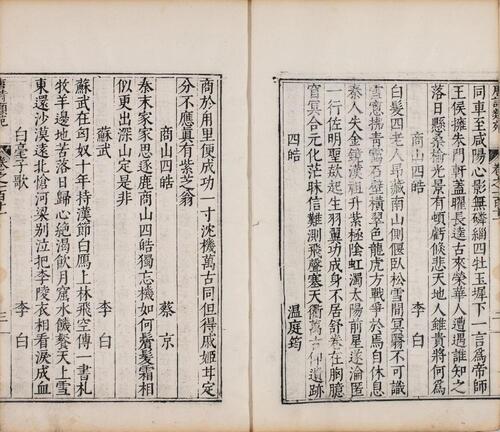 同車至咸陽心影無磷緇四牡玉墀下一言為帝師
王侯擁朱門軒蓋曜長逵古來榮華人遭遇誰知之
落日懸桑榆光景有頓虧倏悲天地人雖貴將何為
商山四皓 李白
白髮四老人昂藏南山側偃臥松雪間冥翳不可識
雲窓拂青靄石壁橫翠色龍虎方戰爭於焉自休息
秦人失金鏡漢祖升紫極陰虹濁太陽前星遂淪匿
一行佐明聖欻起生羽翼功成身不居舒卷在胸臆
窅冥合元化茫昧信難測飛聲塞天衢萬古仰遺跡
四皓 溫庭筠
商於甪里便成功一寸沈機萬古同但得戚姬甘定
分不應真有紫芝翁
商山四皓 蔡京
秦末家家思逐鹿商山四皓獨忘機如何鬢髮霜相
似更出深山定是非
蘇武 李白
蘇武在匈奴十年持漢節白鴈上林飛空傳一書札
牧羊邊地苦落日歸心絶渴飲月窟水饑餐天上雪
東還沙漠遠北愴河梁別泣把李陵衣相看淚成血
白毫子歌 李白